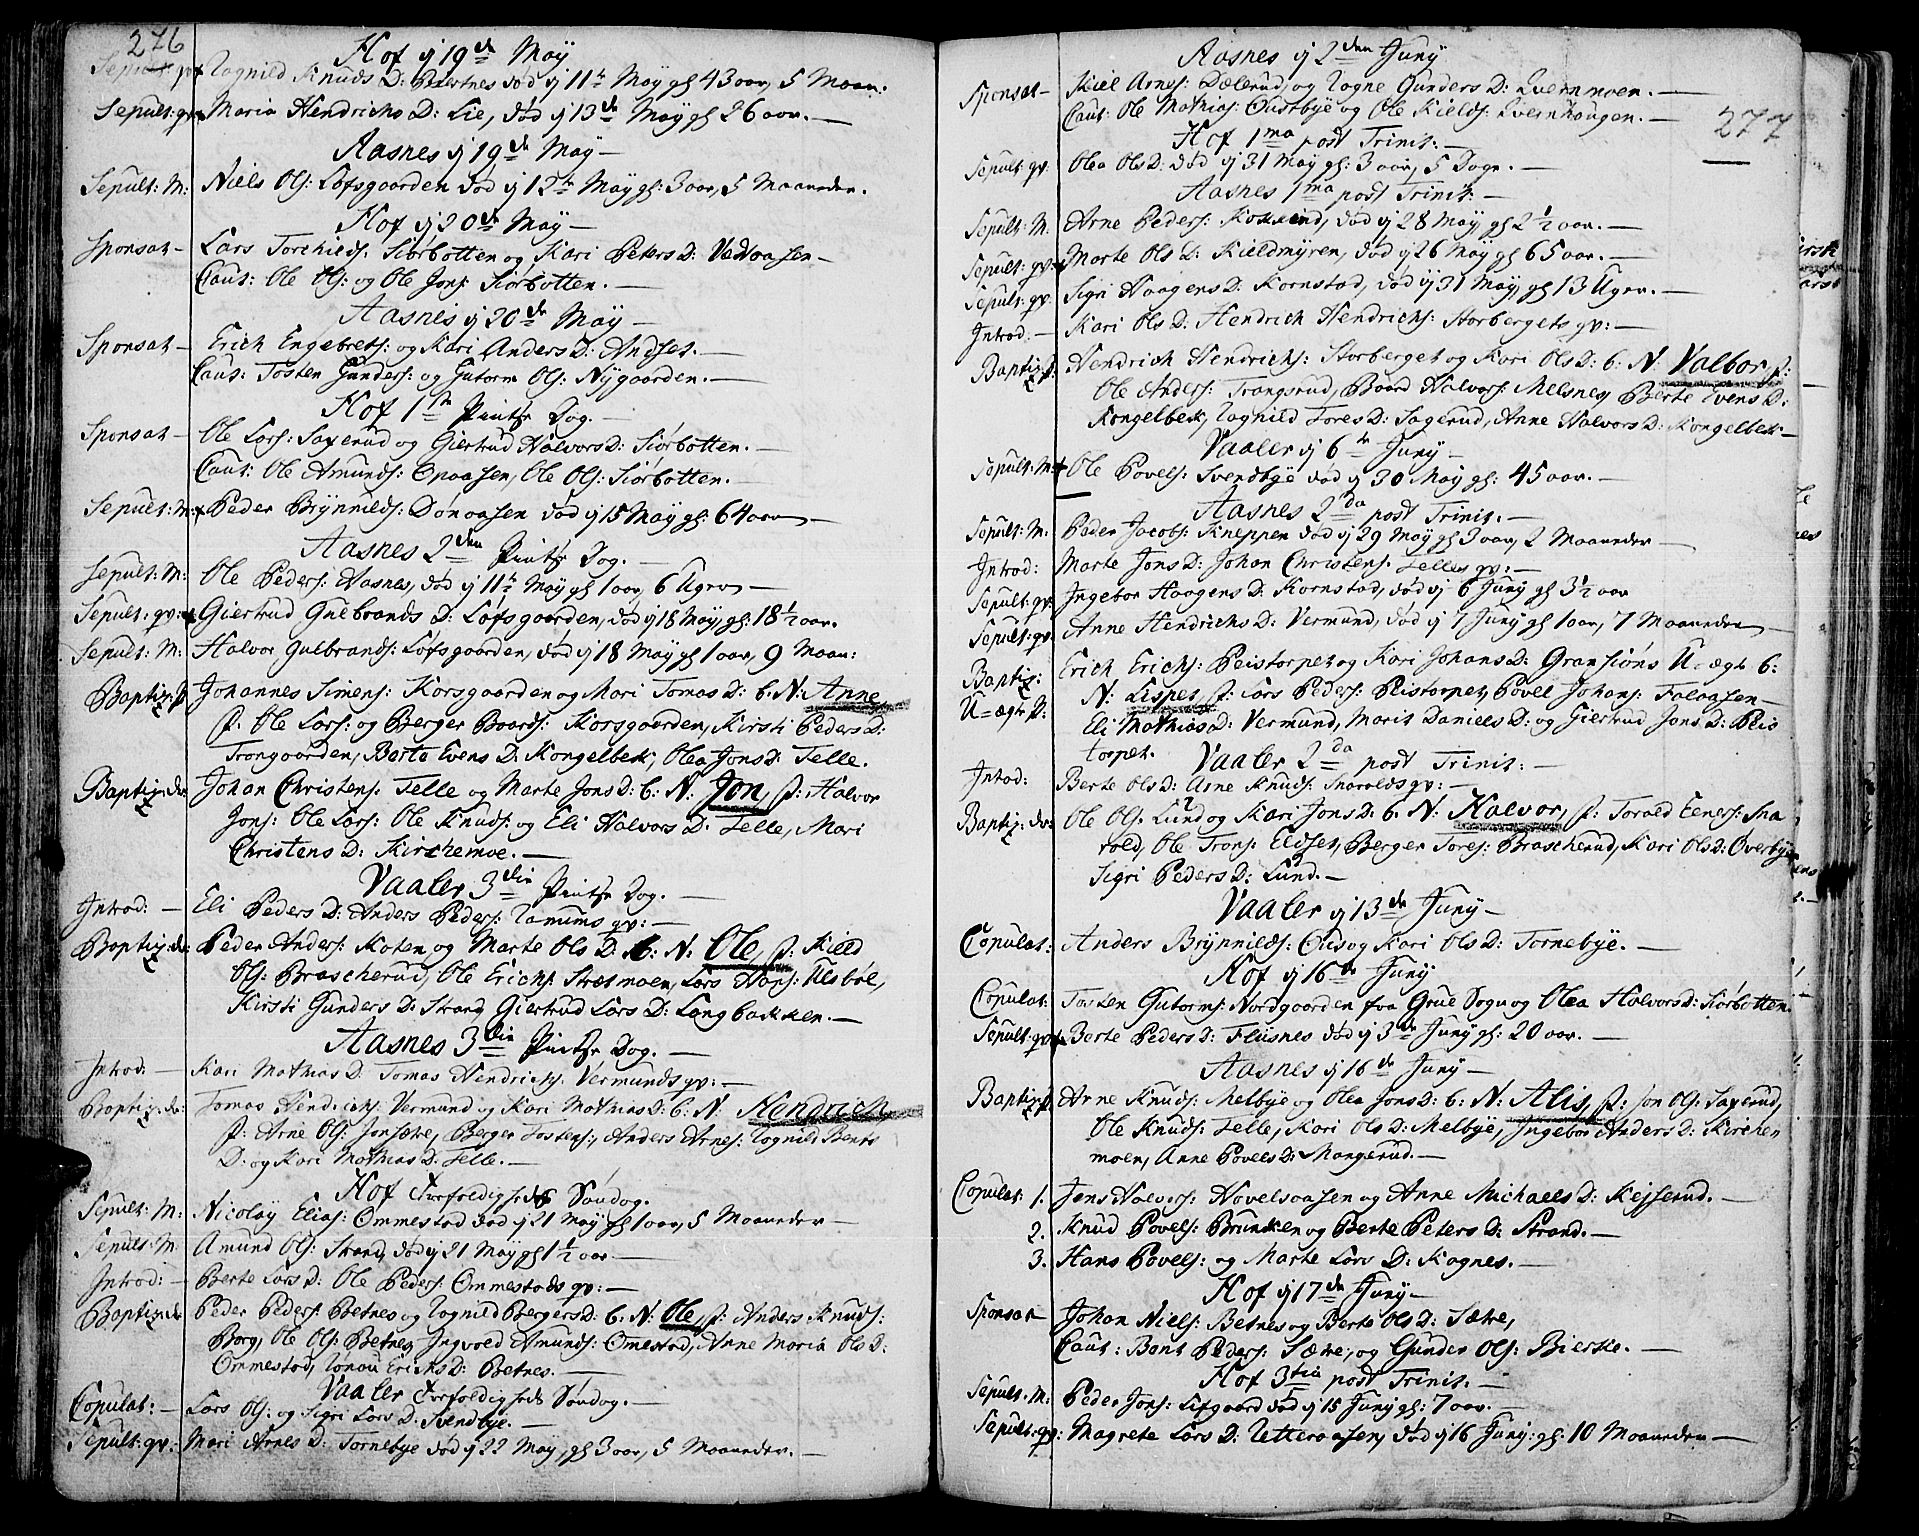 276
Hof ij 19de May
Sepult: Knuds D: død ij 11te May gl 43 aar, 5 Maan.
Sepult: qv Maria Hendrichs D: Lie, død ij 13de May gl 26 aar. —
Aasnes ij 19de May —
Sepult: M: Niels Ols: Løfsgaarden død ij May gl: 3 aar, 5 Maaneder.
Hof ij 20de May —
Sponsat — Lars Torchilds: Siørbotten og Kari Peders D: —
Caut: Ole Ols: og Ole Jons: Siørbotten. —
Aasnes ij 20de May —
Sponsat — Erich Engebrets: og Kari Anders D: Andset. —
Caut: Tosten Gunders: og Gutorm Ols: Nygaarden. —
Hof 1ste Pintse Dag. —
Sponsat — Ole Lars: Saxerud og Giertrud Halvors D: Siørbotten. —
Caut: Ole Amunds: Opaasen, Ole Ols: Siørbotten. —
Sepult: M: Peder Brynnilds: Dønaasen død ij 15 May gl: 64 aar —
Aasnes 2den Pintse Dag. —
Sepult: M: Ole Peders: Aasnes, død ij 11te May gl 1 aar, 6 Uger —
Sepult: qv: Giertrud Gulbrands D: Løfsgaarden, død ij 18 May, gl: 18½ aar.
Sepult: M: Halvor Gulbrands: Løfsgaarden, død ij 18 May gl 1 aar, 9 Maan:
Baptiz: p Johannes Simens: Korsgaarden og Mari Tomas D: b: N: Anne
p: Ole Lars: og Berger Baards: Korsgaarden, Kirsti Peders D:
Trongaarden, Berte Evens D: Kongelbek, Olea Jons D: Telle.
Baptiz: dr: Johan Christens: Telle og Marte Jons D: b: N: Jon, p: Halvor
Jons: Ole Lars: Ole Knuds: og Eli Halvors D: Telle, Mari
Christens D: Kirchemoe. —
Vaaler 3die Pintse Dag. —
Introd: — Eli Peders D: Anders Peders: qv: —
Baptiz: dr: Peder Anders: Koten og Marte Ols D: b: N: Ole, p: Kield
Ols: Brascherud, Ole Erichs: Strætmoen, Lars Hans: Ulsbøl,
Kirsti Gunders D: Strand, Giertrud Lars D: Langbakken. —
Aasnes 3die Pintse Dag. —
Introd: — Kari Mathias D: Tomas Hendrichs: Vermunds qv: —
Baptiz: dr: Tomas Hendrichs: Vermund og Kari Mathias D: b: N: Hendrich
p: Arne Ols: Jonsætre, Berger Tostens:, Anders Arnes: Bents
D: og Kari Mathias D: Telle. —
Hof Søndag.
Sepult: M: Nicolay Elias: Ommestad død ij 21 May gl 1 aar, 5 Maaneder —
Sepult: M Amund Ols: Strand, død ij 21 May gl 1½ aar —
Introd: — Berte Lars D: Ole Peders: Ommestads qv: —
Baptiz: dr Peder Peders: Betnes og Bergers D: b: N: Ole, p: Anders Knuds:
Borg, Ole Ols: Betnes, Ingvold Amunds: Omestad, Anne Maria Ols D:
Ommestad, Erichs D: Betnes. —
Vaaler Søndag. —
Copulat: — Lars Ols: og Sigri Lars D: Svendbye. —
Sepult: qv: Mari Arnes D: Tornebye død ij 22 May, gl 3 aar, 5 Maaneder. —
277
Aasnes ij 2den Juny
Sponsat — Kiel Arnes: og Gunders D: Qvernmoen. —
Caut: Ole Mathias: Oustbye og Ole Kields: Qvernhougen. —
Hof 1ma post Trinit: —
Sepult: qv: Olea Ols D: død ij 31 May gl: 3 aar, 5 Dage. —
Aasnes 1ma post Trinit: —
Sepult: M. Arne Peders: død ij 28 May, gl 2½ aar. —
Sepult: qv: Marte Ols D: Kieldmyren, død ij 26 May gl 65 aar. —
Sepult: qv: Sigri Haagens D: Kornstad, død ij 31 May, gl 13 Uger. —
Introd: — Kari Ols D: Hendrich Hendrichs: Storbergets qv: —
Baptiz: p: Hendrich Hendrichs: Storberget og Kari Ols D: b: N: Valbor, p:
Ole Anders: Trangsrud, Baard Halvors: Melsnes, Berte Evens D:
Kongelbek, Tores D: Sagerud, Anne Halvors D: Kongelbek —
Vaaler ij 6te Juny —
Sepult: M: Ole Povels: Svendbye død ij 30 May gl: 45 aar. —
Aasnes 2da post Trinit. —
Sepult: M: Peder Jacobs: Kneppen død ij 29 May gl 3 aar, 2 Maaneder —
Introd: Marte Jons D: Johan Christens: Telles qv: —
Sepult: qv: Ingebor Haagens D: Kornstad, død ij 6 Juny gl 3½ aar
Sepult: qv: Anne Hendrichs D: Vermund, død ij 7 Juny gl 1 aar, 7 Maaneder —
Baptiz: Erich Erichs: Peistorpet og Kari Johans D: Gransiøns U-ægte b:
U-ægte p: N: Lispet, p: Lars Peders: Pistorpet, Povel Johans: Falaasen —
Eli Mathias D: Vermund, Marit Daniels D: og Giertrud Jons D: Peis
torpet.
Vaaler 2da post Trinit: —
Introd: Berte Ols D: Arne Knuds: Snarolds qv: —
Baptiz: dr: Ole Ols: Lund og Kari Jons D: b: N: Halvor, p: Torald Eeners: Sna
rold, Ole Trons: Eidset, Berger Tores: Brascherud, Kari Ols D: Overbye
Sigri Peders D: Lund. —
Vaaler ij 13de Juny —
Copulat: Anders Brynnilds: Ous og Kari Ols D: Tornebye. —
Hof ij 16de Juny
Copulat: Tosten Gutorms: Nordgaarden fra Grue Sogn og Olea Halvors D: Siørbotten.
Sepult: qv: Berte Peders D: Flisnes død ij 3de Juny gl: 20 aar. —
Aasnes ij 16de Juny —
Baptiz: p Arne Knuds: Melbye og Olea Jons D: b: N: Alis, p: Jon Ols: Saxerud,
Ole Knuds: Telle, Kari Ols D: Melbye, Ingebor Anders D: Kirchen
moen, Anne Povels D: Mangerud. —
Copulat: 1. Jens Halvors: Hovelsaasen og Anne Michaels D: Kejserud. —
2. Knud Povels: og Berte Peters D: Strand. —
3. Hans Povels: og Marte Lars D: Kagnes. —
Hof ij 17de Juny —
Sponsat Johan Niels: Betnes og Berte Ols D: Sætre,
Caut: Bent Peders: Sætre, og Gunder Ols: Bierke. —
Hof 3tia post Trinit. —
Sepult: M: Peder Jons: Lifgaard død ij 15 Juny gl: 7 aar. —
Sepult: qv: Magrete Lars D: Utteraasen, død ij 16 Juny: gl: 10 Maaneder —